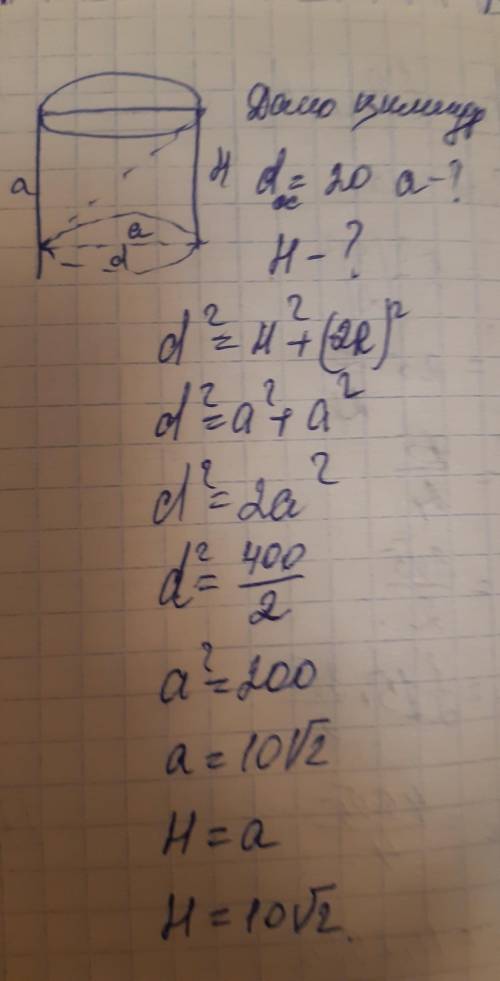 Дано цилиндр
d = 20 a - ?
H - ?
a H
a
d
d² = H² + (2R)²
d² = a² + a²
d² = 2a²
d² = 400/2
a² = 200
a = 10√2
H = a
H = 10√2.